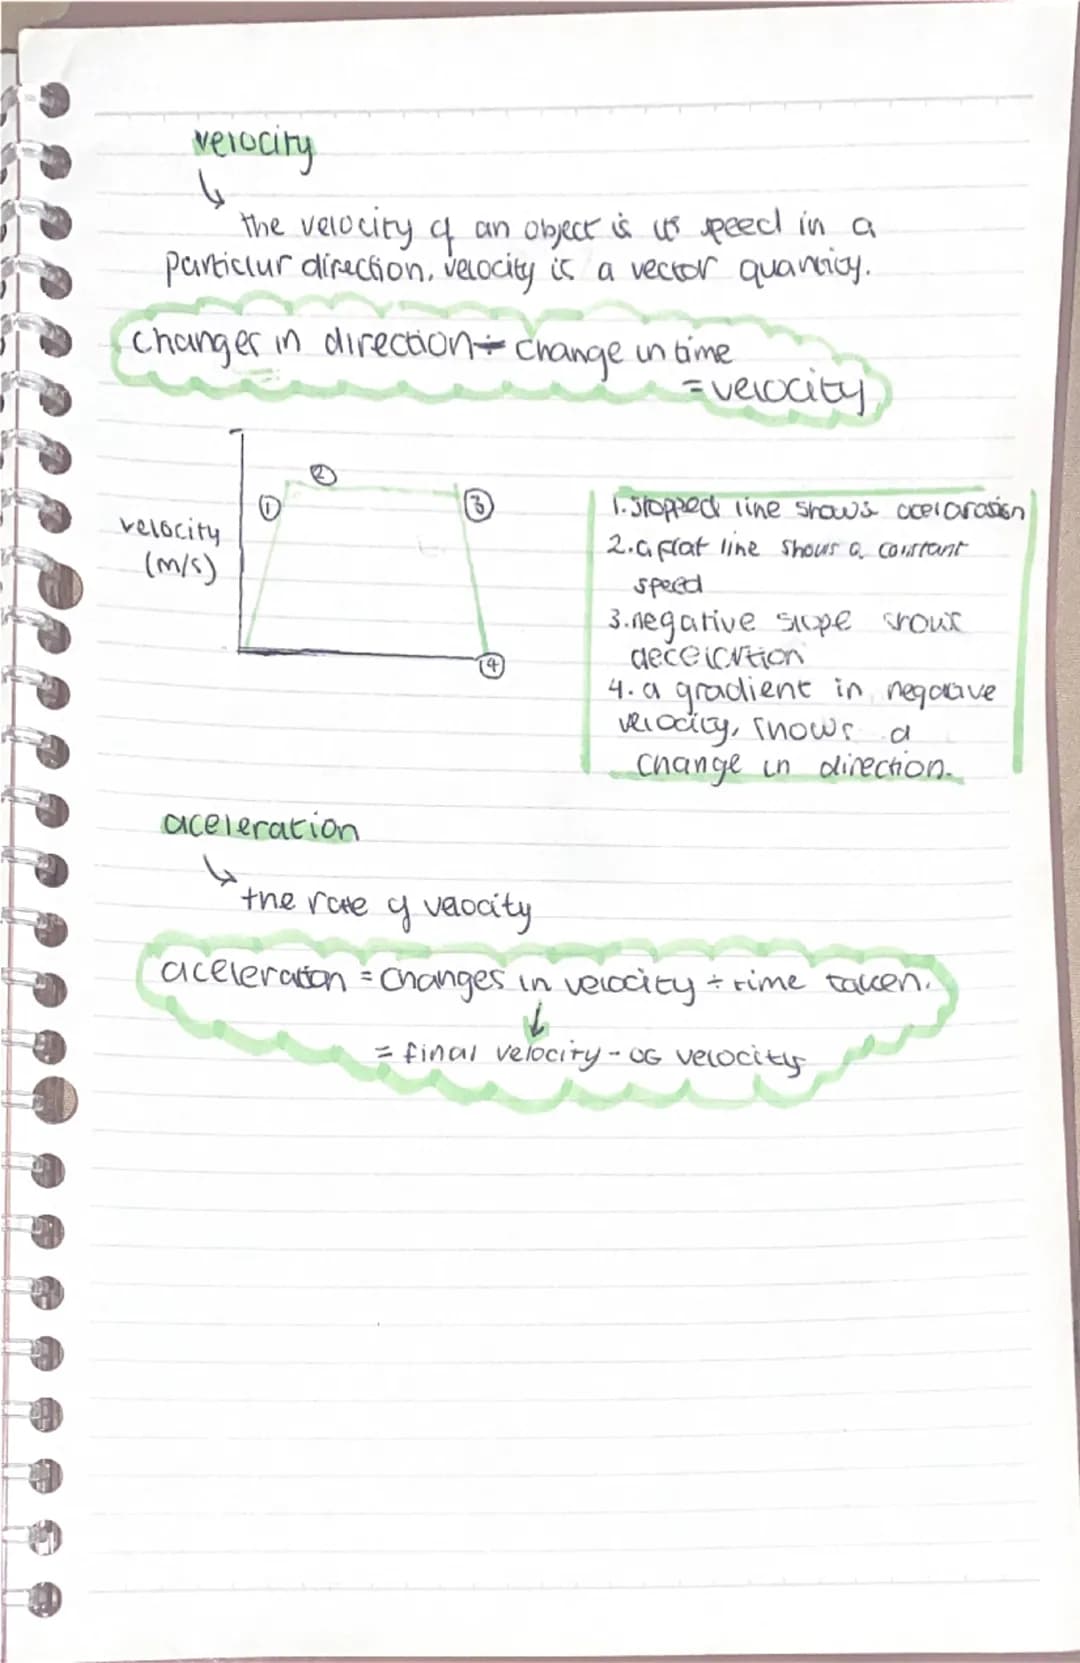 velocity
the velocity of an object is its speed in a
particlur direction, velocity is a vector quantity.
changes in direction ÷ change in time
= velocity
②
①
③
velocity
(m/s)
④
1. slopped line shows accelaration
2. a flat line shows a constant
speed
3. negative slope shows
decelartion
4. a gradient in negative
velocity, shows a
change in direction.
aceleration
the rate of velocity
aceleration = changes in velocity ÷ time taken.
= final velocity - OG velocity